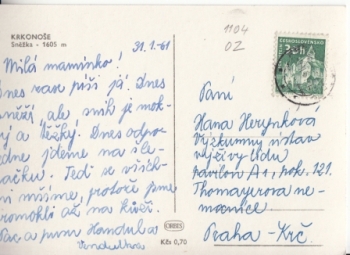 KRKONOŠE
Sněžka - 1605 m
31.1.-61
Milá maminko!
Dnes zas píši já. Dnes
sněží, ale sníh je mok-
rý a těžký. Dnes odpo-
ledne jdeme na
Teď se všich-
ni protože jsme
promokli až na kůži.
Pac a pusu Handulka
1104
OZ
ČESKOSLOVENSKO
30h
Paní
Hana Herynková
Výzkumný ústav
výživy lidu
pavilon A1, pok. 121.
Thomayerova ne-
mocnice
Praha - Krč.
ORBIS
Kčs 0,70